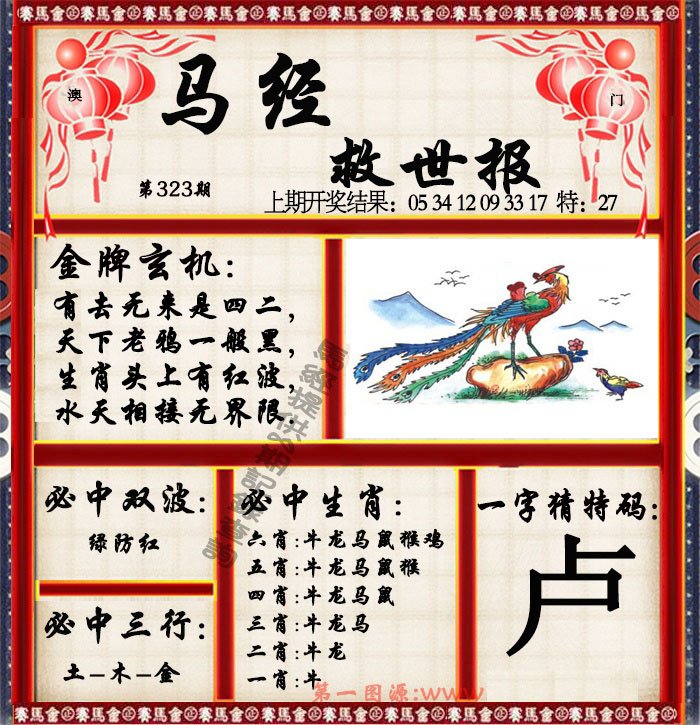 賽馬會正賽馬會正賽馬會正賽馬會正賽馬會正賽馬會
澳
门
马经
救世报
第323期
上期开奖结果：05 34 12 09 33 17 特：27
金牌玄机：
有去无来是四二，
天下老鸦一般黑，
生肖头上有红波，
水天相接无界限.
必中双波：
绿防红
必中三行：
土-木-金
必中生肖：
六肖:牛龙马鼠猴鸡
五肖:牛龙马鼠猴
四肖:牛龙马鼠
三肖:牛龙马
二肖:牛龙
一肖:牛
一字猜特码：
卢
第一图源:www